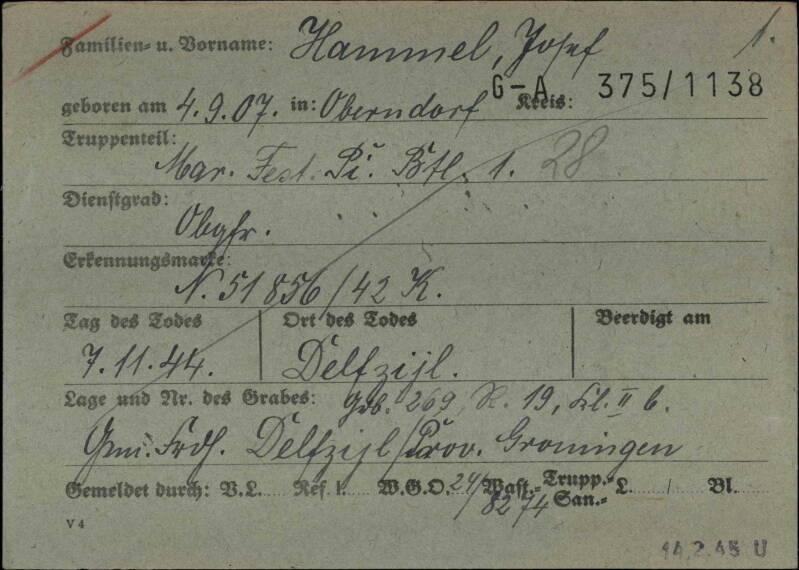 Familien- u. Vorname: Hammel, Josef 1.
G-A 375/1138
geboren am 4.9.07. in: Oberndorf Kreis:
Truppenteil:
Mar. Fest. Pi. Btl. 1. 28
Dienstgrad:
Obgfr.
Erkennungsmarke:
N. 51856/42 K.
Tag des Todes Ort des Todes Beerdigt am
7.11.44. Delfzijl.
Lage und Nr. des Grabes: Grb. 269, R. 19, Kl. II b.
Gem. Frdh. Delfzijl/Prov. Groningen
Gemeldet durch: V.L. Ref I. W.G.O. 24/8274 Wast.- Trupp.- San.- L. / Bl.
V 4
14.2.45 U